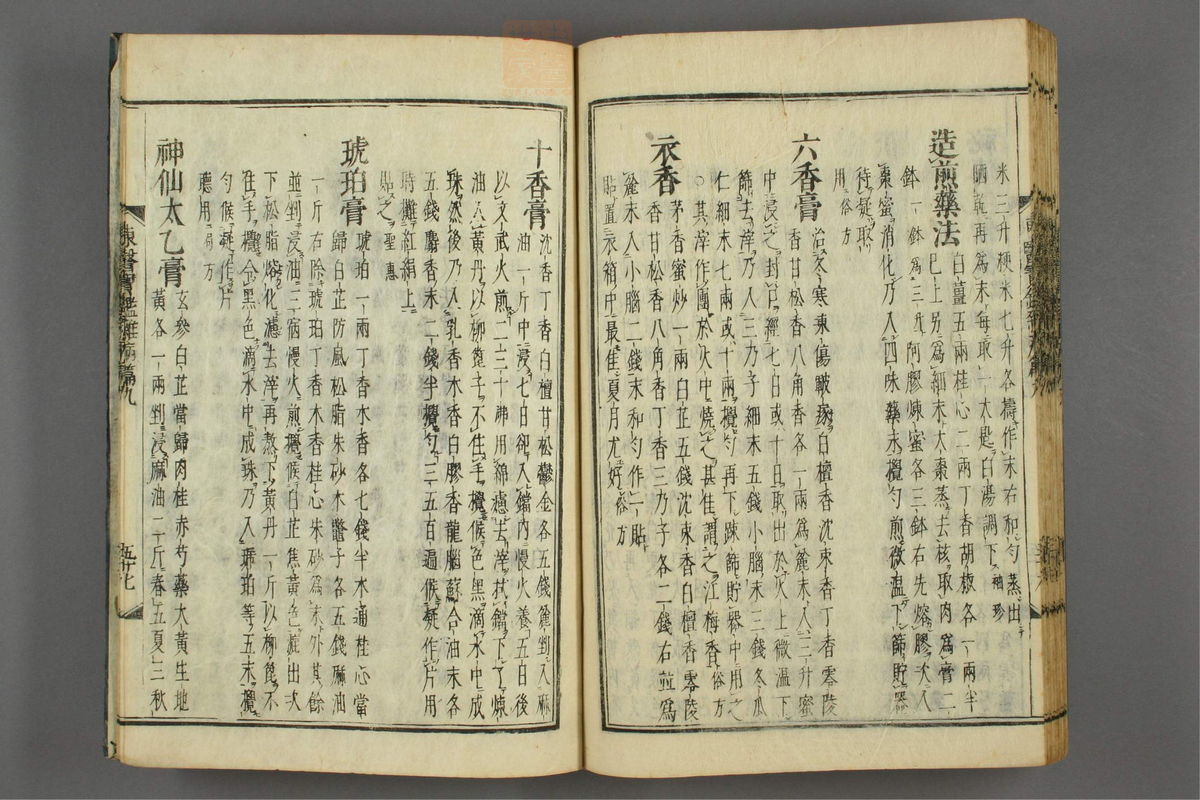 米三升粳米七升各擣作末右和勻蒸出
晒乾再爲末每取一大匙白湯調下袖珍
造煎藥法
白薑五兩桂心二兩丁香胡椒各一兩半
已上另爲細末大棗蒸去核取肉爲膏二
鉢一鉢爲三升阿膠煉蜜各三鉢右先熔膠次入
棗蜜消化乃入四味藥末攪勻煎微溫下篩貯器
待凝取
用俗方
六香膏
治冬寒凍傷皸瘃白檀香沈束香丁香零陵
香甘松香八角香各一兩爲麄末入三升蜜
中浸之封口經七日或十日取出於火上微溫下
篩去滓乃入三乃子細末五錢小腦末三錢冬瓜
仁細末七兩或十兩攪勻再下踈篩貯器中用之
○其滓作團於火中燒之甚佳謂之江梅香俗方
衣香
茅香蜜炒一兩白芷五錢沈束香白檀香零陵
香甘松香八角香丁香三乃子各二錢右並爲
麄末入小腦二錢末和勻作一貼
貼置衣箱中最佳夏月尤好俗方
十香膏
沈香丁香白檀甘松鬱金各五錢麄剉入麻
油一斤中浸七日卻入鐺內慢火養五日後
以文武火煎二三十沸用綿濾去滓拭鐺下了煉
油入黃丹以柳篦子不住手攪候色黑滴水中成
珠然後乃入乳香木香白膠香龍腦蘇合油末各
五錢麝香末二錢半攪勻三五百遍候凝作片用
時攤紅絹上
貼之聖惠
琥珀膏
琥珀一兩丁香木香各七錢半木通桂心當
歸白芷防風松脂朱砂木鱉子各五錢麻油
一斤右除琥珀丁香木香桂心朱砂爲末外其餘
並剉浸油三宿慢火煎攪候白芷焦黃色漉出次
下松脂熔化濾去滓再熬下黃丹一斤以柳篦不
住手攪令黑色滴水中成珠乃入琥珀等五末攪
勻候凝作片
聽用局方
神仙太乙膏
玄參白芷當歸肉桂赤芍藥大黃生地
黃各一兩剉浸麻油二斤春五夏三秋
東醫寶鑑雜病篇九